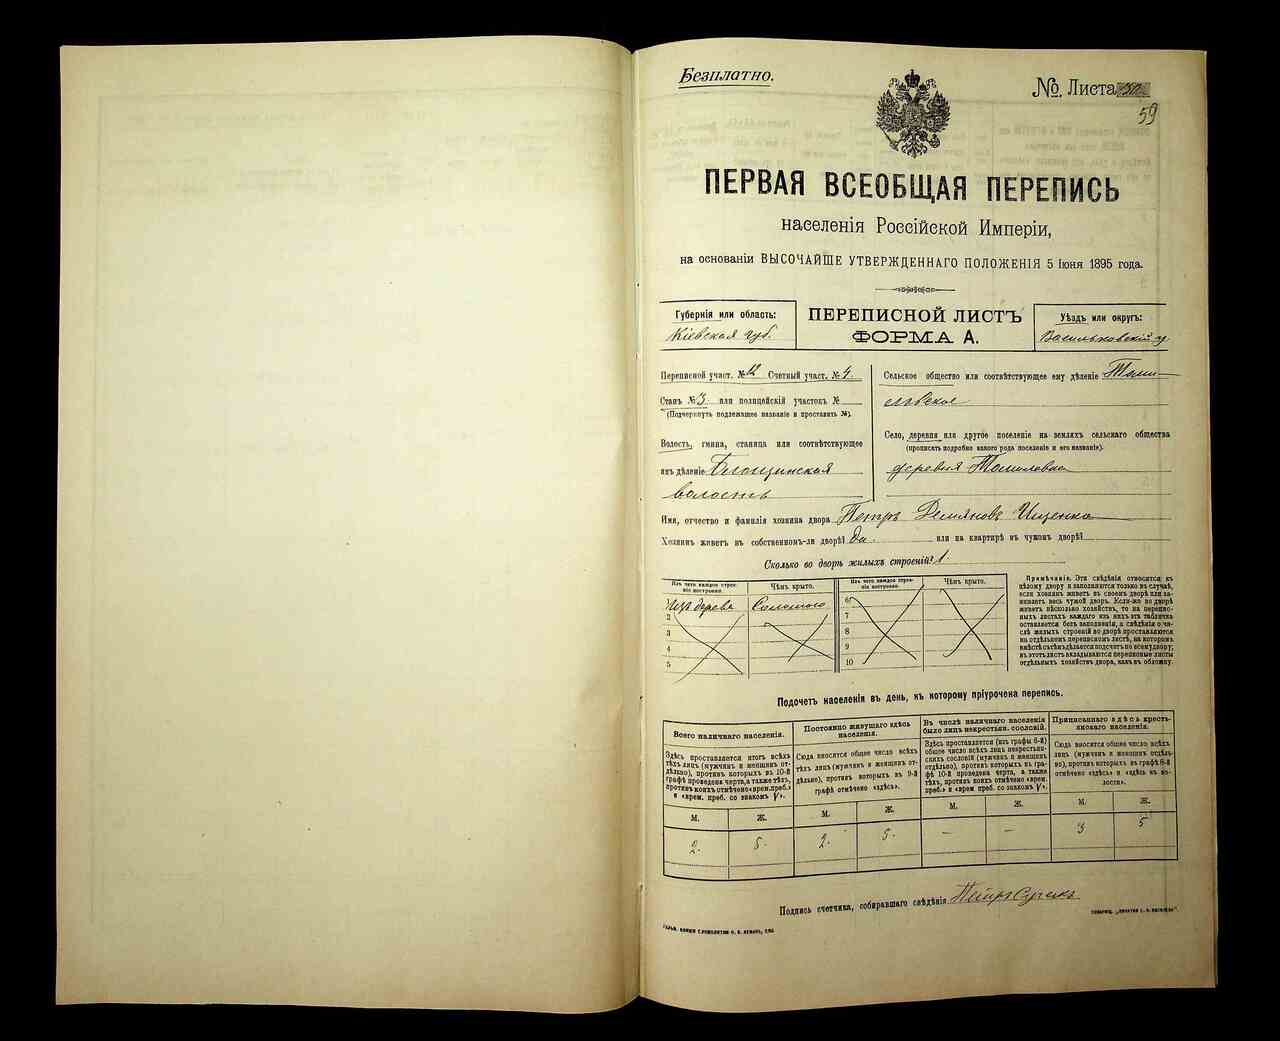 Безплатно.
№. Листа
59
ПЕРВАЯ ВСЕОБЩАЯ ПЕРЕПИСЬ
населенія Россійской Имперіи,
на основаніи ВЫСОЧАЙШЕ УТВЕРЖДЕННАГО ПОЛОЖЕНІЯ 5 Іюня 1895 года.
Губернія или область:
Кіевская губ.
ПЕРЕПИСНОЙ ЛИСТЪ
ФОРМА А.
Уѣздъ или округъ:
Васильковскій у.
Переписной участ. №12 Счетный участ. №4.
Станъ №3 или полицейскій участокъ №
(Подчеркнуть подлежащее названіе и проставить №).
Волость, гмина, станица или соотвѣтствующее
имъ дѣленіе
волость
Сельское общество или соотвѣтствующее ему дѣленіе Томи-
ловское
Село, деревня или другое поселеніе на земляхъ сельскаго общества
(прописать подробно какого рода поселеніе и его названіе).
деревня Томиловка
Имя, отчество и фамилія хозяина двора Петръ Демяновъ Ищенко
Хозяинъ живетъ въ собственномъ-ли дворѣ? Да. или на квартирѣ въ чужомъ дворѣ?
Сколько во дворѣ жилыхъ строеній? 1.
Изъ чего каждое строе-
ніе построено.
Чѣмъ крыто.
Изъ чего каждое строе-
ніе построено.
Чѣмъ крыто.
1 Изъ дерева Соломою
2
3
4
5
6
7
8
9
10
Примѣчаніе. Эти свѣдѣнія относятся къ
цѣлому двору и заполняются только въ случаѣ,
если хозяинъ живетъ въ своемъ дворѣ или за-
нимаетъ весь чужой дворъ. Если-же во дворѣ
живетъ нѣсколько хозяйствъ, то на перепис-
ныхъ листахъ каждаго изъ нихъ эта табличка
оставляется безъ заполненія, а свѣдѣнія о чи-
слѣ жилыхъ строеній во дворѣ проставляются
на отдѣльномъ переписномъ листѣ, на которомъ
вмѣстѣ съ тѣмъ дѣлается подсчетъ по всему двору;
въ этотъ листъ вкладываются переписные листы
отдѣльныхъ хозяйствъ двора, какъ въ обложку.
Подсчетъ населенія въ день, къ которому пріурочена перепись.
Всего наличнаго населенія.
Здѣсь проставляется итогъ всѣхъ
тѣхъ лицъ (мужчинъ и женщинъ от-
дѣльно), противъ которыхъ въ 10-й
графѣ проведена черта, а также тѣхъ,
противъ коихъ отмѣчено «врем. преб.»
и «врем. преб. со знакомъ V».
Постоянно живущаго здѣсь
населенія.
Сюда вносится общее число всѣхъ
тѣхъ лицъ (мужчинъ и женщинъ от-
дѣльно), противъ которыхъ въ 9-й
графѣ отмѣчено «здѣсь».
Въ числѣ наличнаго населенія
было лицъ некрестьян. сословій.
Здѣсь проставляется (изъ графы 6-й)
общее число всѣхъ лицъ некрестьян-
скихъ сословій (мужчинъ и женщинъ
отдѣльно), противъ которыхъ въ гра-
фѣ 10-й проведена черта, а также
тѣхъ, противъ коихъ отмѣчено «врем.
преб.» и «врем. преб. со знакомъ V».
Приписаннаго здѣсь кресть-
янскаго населенія.
Сюда вносится общее число всѣхъ
лицъ (мужчинъ и женщинъ отдѣль-
но), противъ которыхъ въ графѣ 8-й
отмѣчено «здѣсь» и «здѣсь въ во-
лости».
М. Ж. М. Ж. М. Ж. М. Ж.
2. 5. 2. 5. — — 3 5
Подпись счетчика, собиравшаго свѣдѣнія Петръ